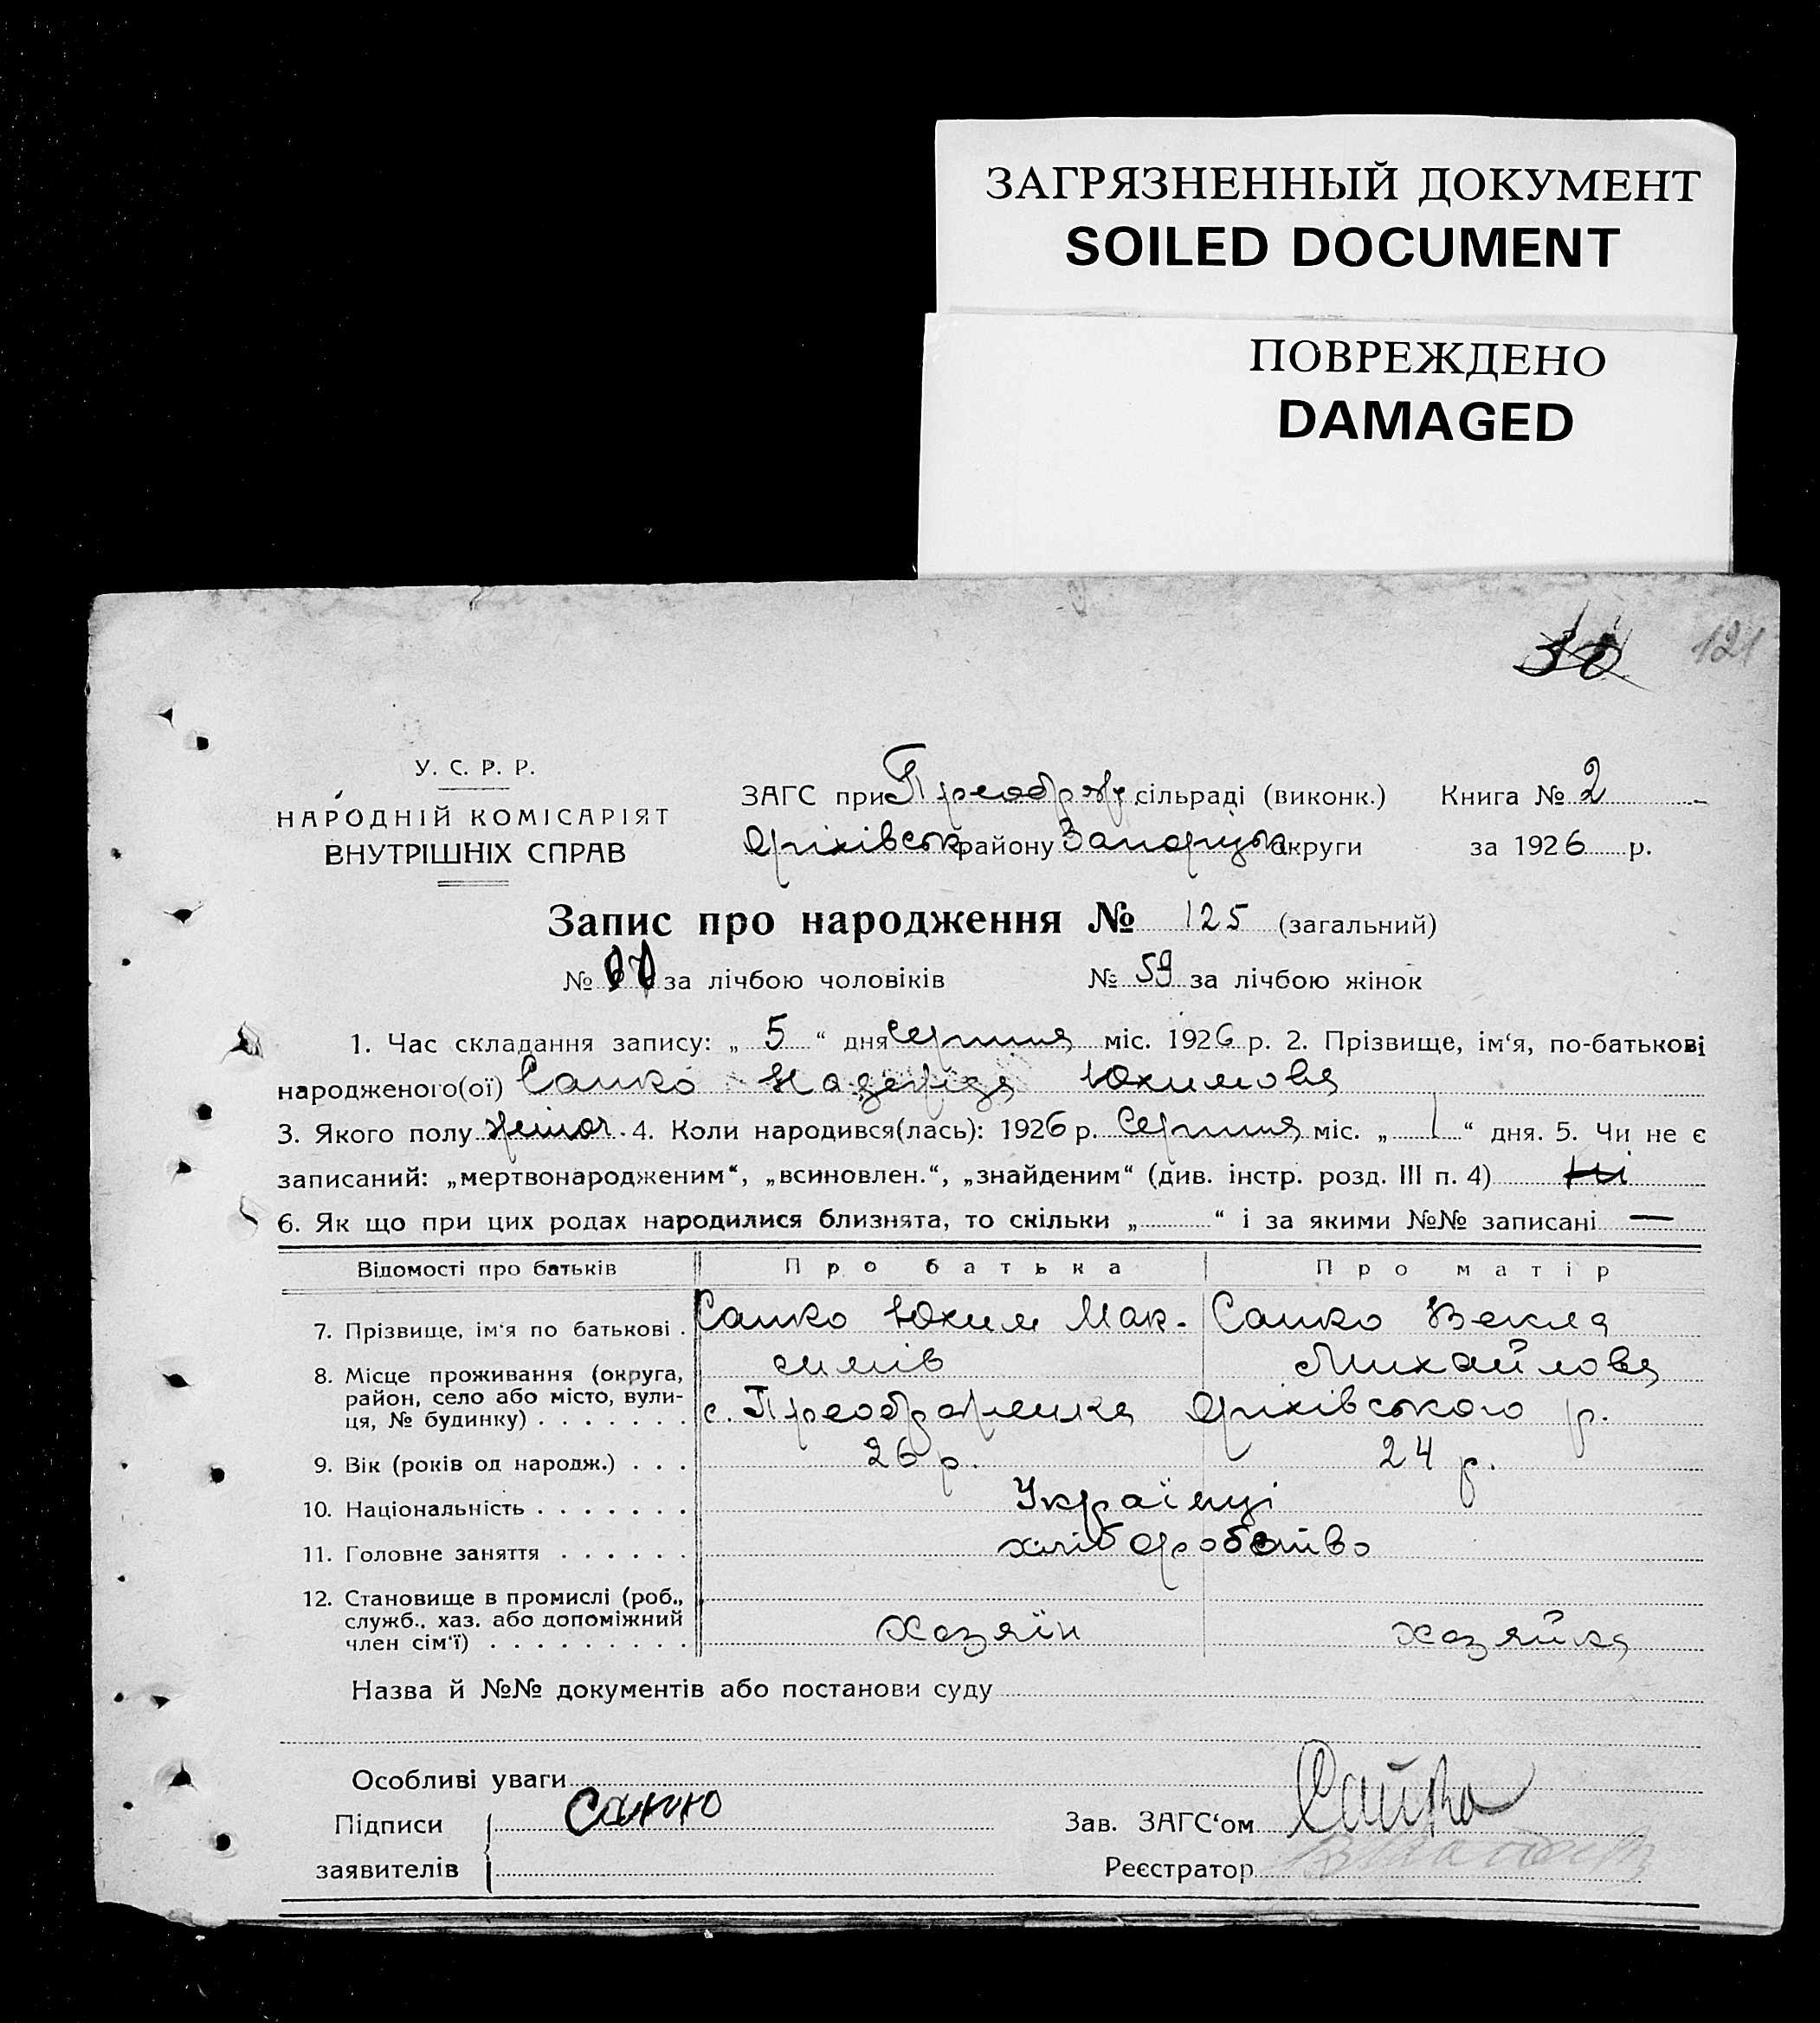 ЗАГРЯЗНЕННЫЙ ДОКУМЕНТ
SOILED DOCUMENT
ПОВРЕЖДЕНО
DAMAGED
30 121
У. С. Р. Р.
НАРОДНІЙ КОМІСАРІЯТ
ВНУТРІШНІХ СПРАВ
ЗАГС при Преображ. сільраді (виконк.) Книга № 2
Оріхівськ району Запоріцьк округи за 1926 р.
Запис про народження № 125 (загальний)
№ за лічбою чоловіків № 59 за лічбою жінок
1. Час складання запису: „ 5 “ дня серпня міс. 1926 р. 2. Прізвище, ім‘я, по-батькові
народженого(ої) Сапко Надежда Юхимова
3. Якого полу жіноч. 4. Коли народився(лась): 1926 р. Серпня міс. „ 1 “ дня. 5. Чи не є
записаний: „мертвонародженим“, „всиновлен.“, „знайденим“ (див. інстр. розд. III п. 4) ні
6. Як що при цих родах народилися близнята, то скільки „ “ і за якими №№ записані —
Відомості про батьків Про батька Про матір
7. Прізвище, ім‘я по батькові . Сапко Юхим Мак- Сапко Векла
симів Михайлова
8. Місце проживання (округа,
район, село або місто, вули-
ця, № будинку) . . . . . . . с. Преображенка Оріхівського р.
9. Вік (років од народж.) . . . 26 р. 24 р.
10. Національність . . . . . . . Українці
11. Головне заняття . . . . . . хліборобство
12. Становище в промислі (роб.,
служб., хаз. або допоміжний
член сім‘ї) . . . . . . . . . хозяїн хозяйка
Назва й №№ документів або постанови суду
Особливі уваги
Підписи Сапко Зав. ЗАГС‘ом
заявителів Реєстратор